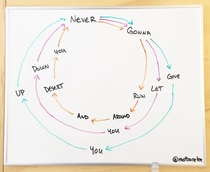 NEVER
GONNA
GIVE
YOU
UP
LET
YOU
DOWN
RUN
AROUND
AND
DESERT
YOU